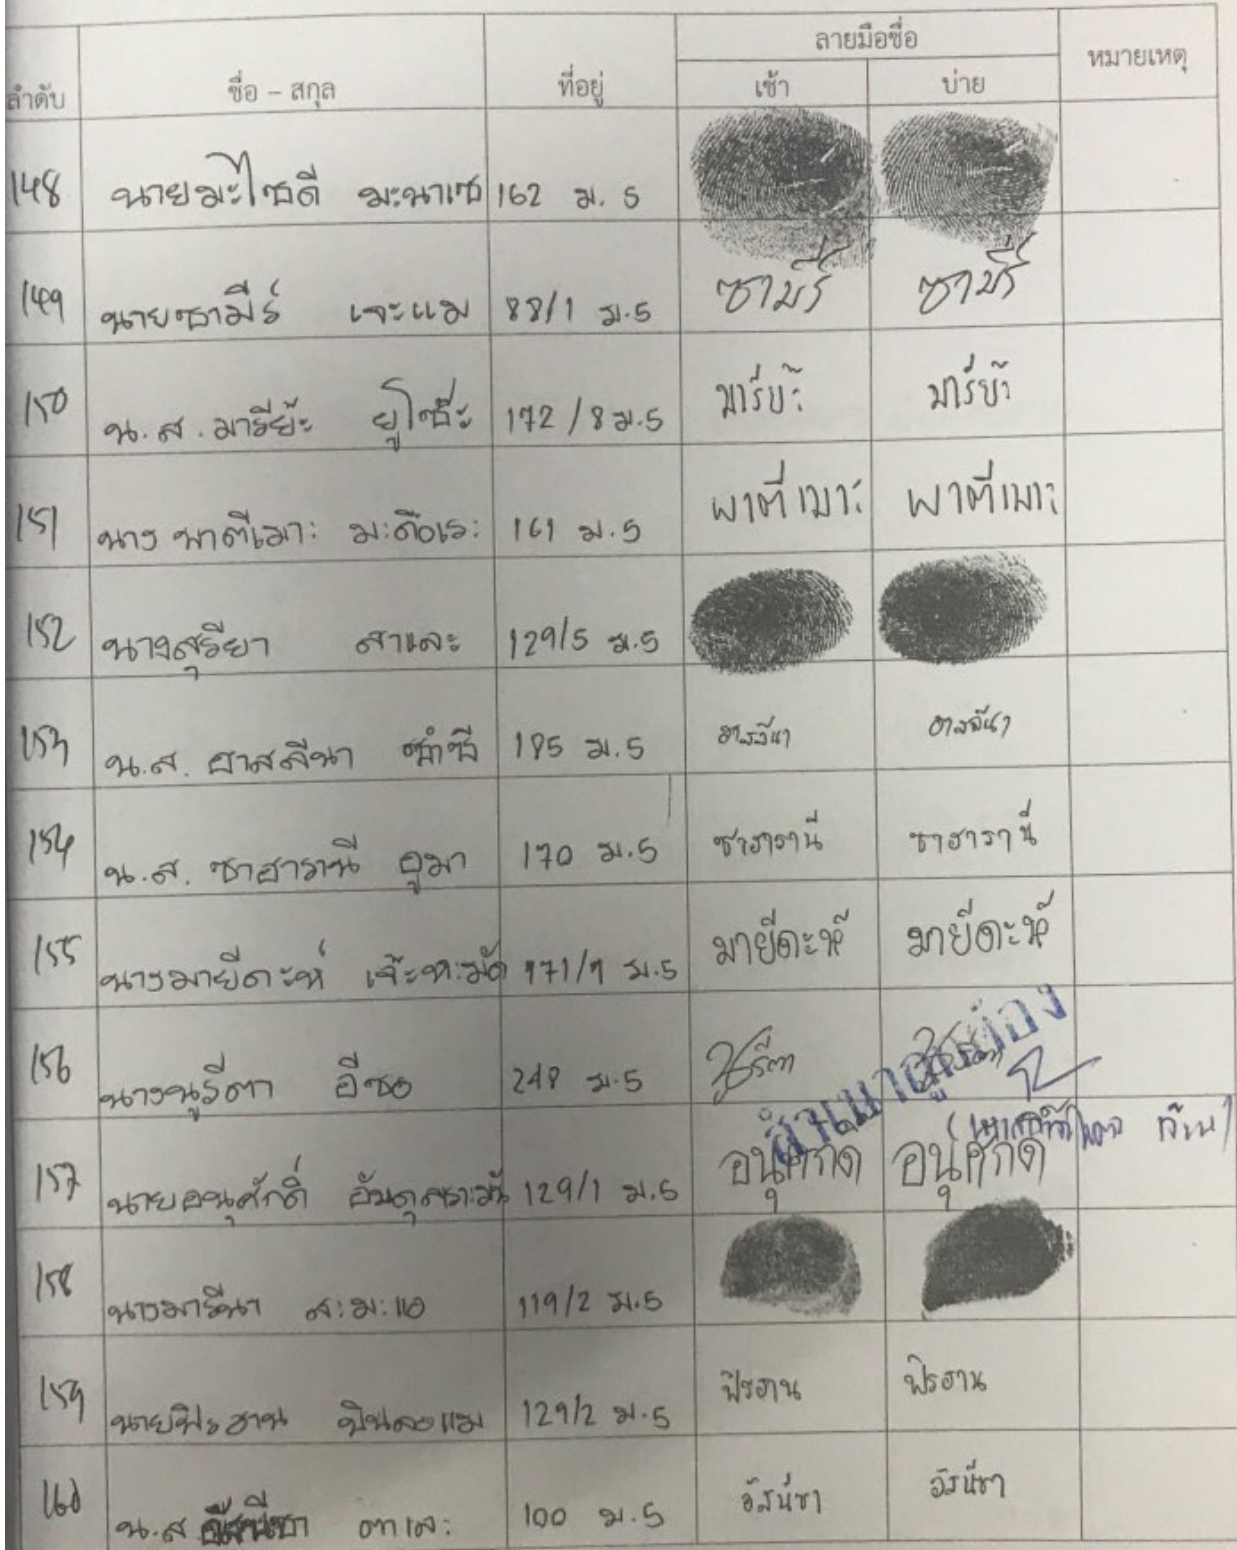 ลำดับ ชื่อ - สกุล ที่อยู่ ลายมือชื่อ หมายเหตุ
เช้า บ่าย
148 นายมะไซดี มะนาเซ 162 ม. 5
149 นายซามีร์ เจะแม 88/1 ม.5 ซามีร์ ซามีร์
150 น.ส. มารีย๊ะ ยูโซ๊ะ 172/8 ม.5 มารีย๊ะ มารีย๊ะ
151 นาง พาตีเมาะ มะดือเระ 161 ม.5 พาตีเมาะ พาตีเมาะ
152 นางสุรียา สาและ 129/5 ม.5
153 น.ส. ฮาสลีนา ซำซี 185 ม.5 ฮาสลีนา ฮาสลีนา
154 น.ส. ซาฮารานี อูมา 170 ม.5 ซาฮารานี ซาฮารานี
155 นางมายีดะห์ เจ๊ะหะมัด 171/1 ม.5 มายีดะห์ มายีดะห์
156 นางนูรีตา อีซอ 248 ม.5 นูรีตา นูรีตา
สำเนาถูกต้อง
157 นายอนุศักดิ์ อับดุลเราะมัน 129/1 ม.5 อนุศักดิ์ อนุศักดิ์
158 นางมารีนา สะมะแอ 119/2 ม.5
159 นายฟิรฮาน บินดอแม 129/2 ม.5 ฟิรฮาน ฟิรฮาน
160 น.ส. อัสนีซา ตาเละ 100 ม.5 อัสนีซา อัสนีซา